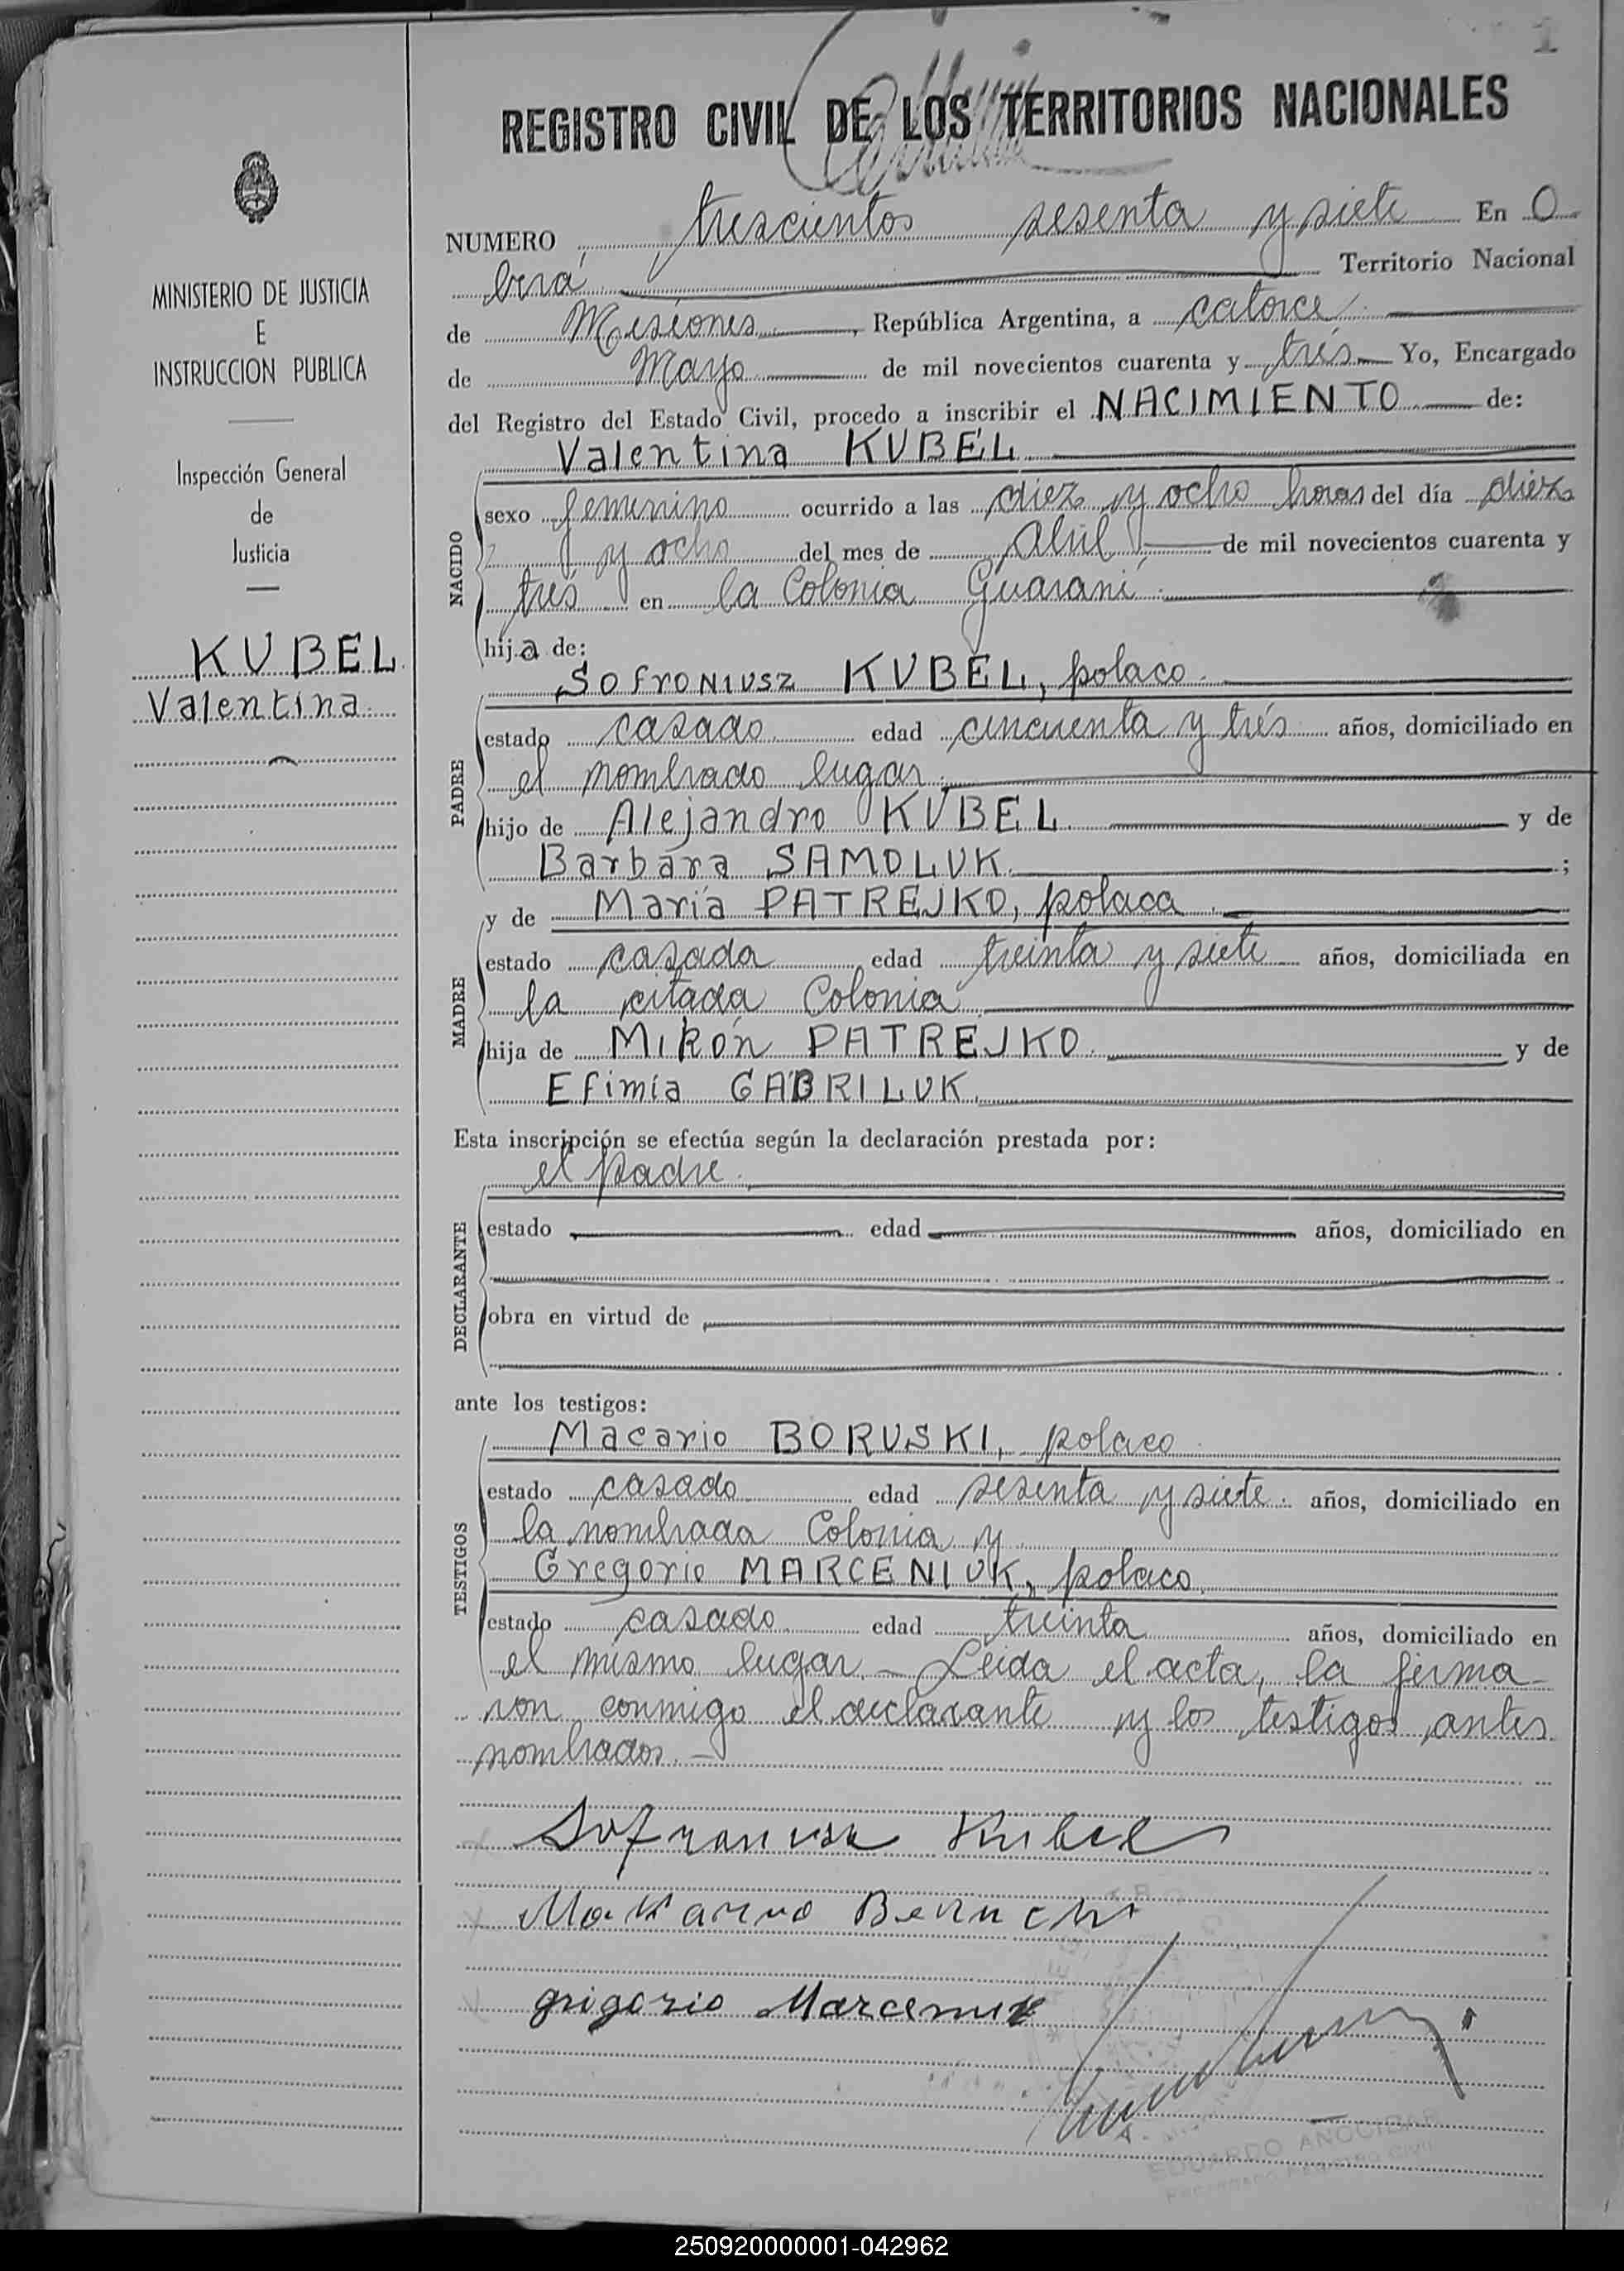 1
REGISTRO CIVIL DE LOS TERRITORIOS NACIONALES
MINISTERIO DE JUSTICIA
E
INSTRUCCION PUBLICA
Inspección General
de
Justicia
KUBEL
Valentina
NUMERO trescientos sesenta y siete En O
berá Territorio Nacional
de Misiones, República Argentina, a catorce
de Mayo de mil novecientos cuarenta y trés Yo, Encargado
del Registro del Estado Civil, procedo a inscribir el NACIMIENTO de:
NACIDO
Valentina KUBEL
sexo femenino ocurrido a las diez y ocho horas del día diez
y ocho del mes de Abril de mil novecientos cuarenta y
trés en la Colonia Guaraní
hija de:
PADRE
Sofroniusz KUBEL, polaco
estado casado edad cincuenta y trés años, domiciliado en
el nombrado lugar
hijo de Alejandro KUBEL y de
Barbara SAMOLUK ;
MADRE
y de María PATREJKO, polaca
estado casada edad treinta y siete años, domiciliada en
la citada Colonia
hija de Mikón PATREJKO y de
Efimia GABRILUK
Esta inscripción se efectúa según la declaración prestada por:
DECLARANTE
el padre
estado edad años, domiciliado en
obra en virtud de
ante los testigos:
TESTIGOS
Macario BORUSKI, polaco
estado casado edad sesenta y siete años, domiciliado en
la nombrada Colonia y
Gregorio MARCENIUK, polaco
estado casado edad treinta años, domiciliado en
el mismo lugar. - Leida el acta, la firma-
ron conmigo el declarante y los testigos antes
nombrados. -
Sofroniusz Kubel
Makarno
grigorio Marceniuk
EDUARDO ANOCIBAR
ENCARGADO REGISTRO CIVIL
250920000001-042962